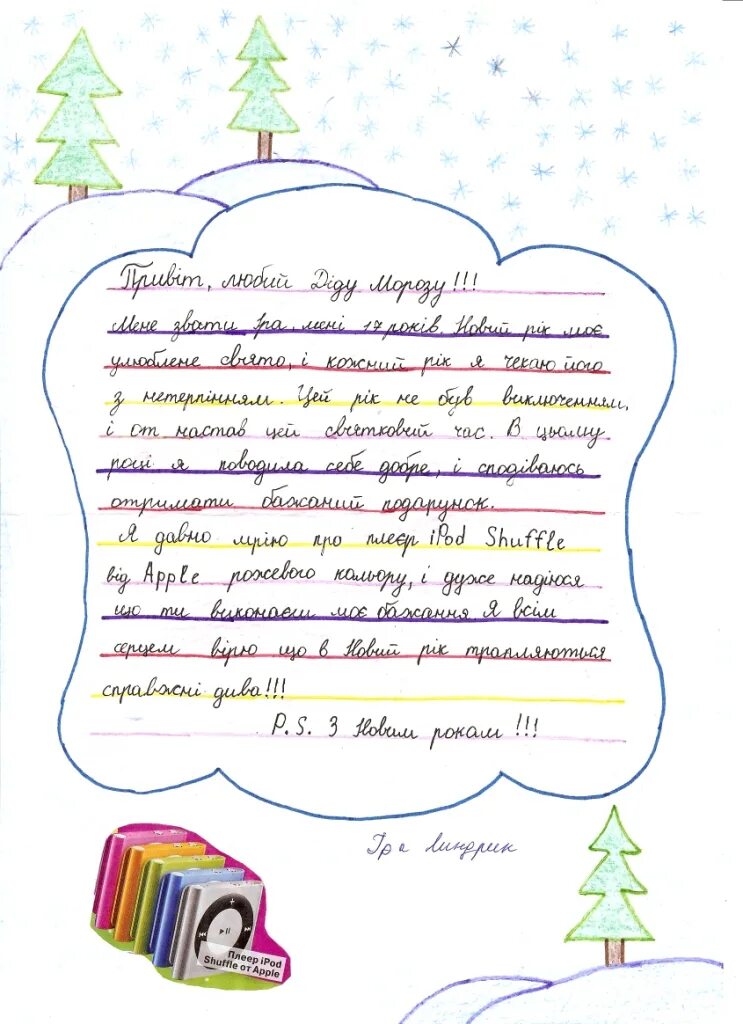 Привіт, любий Діду Морозу!!!
Мене звати Іра, мені 17 років. Новий рік моє
улюблене свято, і кожний рік я чекаю його
з нетерпінням. Цей рік не був виключенням,
і от настав цей святковий час. В цьому
році я поводила себе добре, і сподіваюсь
отримати бажаний подарунок.
Я давно мрію про плеєр iPod Shuffle
від Apple рожевого кольору, і дуже надіюся
що ти виконаєш моє бажання. Я всім
серцем вірю що в Новий рік трапляються
справжні дива!!!
P.S. З Новим роком!!!
Іра Линдрик
Плеер iPod
Shuffle от Apple